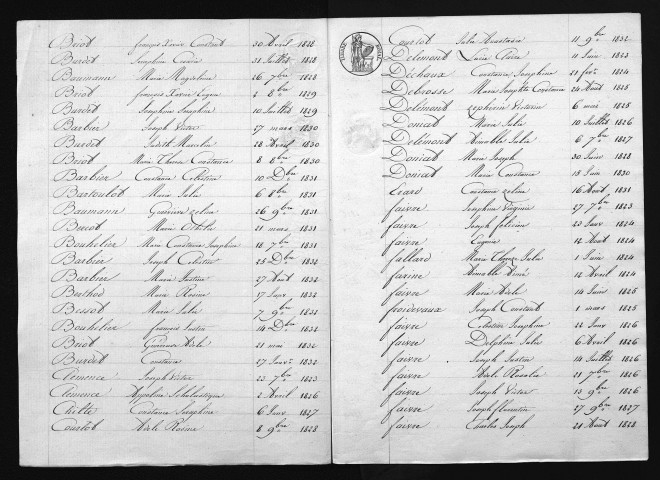 Briot françois Xavier Constant 30 Avril 1828
Bardot Josephine 31 Juillet 1828
Baumann Marie Magdeleine 26 7bre 1828
Briot françois Xavier 2 8bre 1829
Burdet Josephine Seraphine 10 Juillet 1829
Barbier Joseph Victor 27 mars 1830
Bardot Judith Marceline 28 Avril 1830
Briot Marie Therese Constance 8 8bre 1830
Barbier Constance Celestine 10 Dbre 1831
Bartoulot Marie Julie 6 8bre 1831
Baumann zeline 26 9bre 1831
Marie 21 mars 1831
Bouhelier Marie Constance Josephine 18 7bre 1831
Barbier Joseph Celestin 25 Dbre 1832
Barbier Marie Justine 27 Août 1832
Berthod Marie Rosine 17 Janv 1832
Bessot Marie Julie 7 9bre 1832
Bouhelier françois Justin 14 Dbre 1832
Briot Adèle 21 mai 1832
Burdet Constance 27 Janvr 1832
Clemence Joseph Victor 23 7bre 1823
Clemence Scholastique 2 Avril 1826
Constance Josephine 6 Janv 1827
Courtot Adèle Rosine 8 9bre 1828
Courtot Julie Anastasie 11 9bre 1832
Delemont Lucie 11 Juin 1823
Constance Josephine 21 fevr 1824
Debrosse Marie Josephte Constance 24 Août 1825
Delemont zephirin Victorin 6 mai 1825
Donicat Marie Julie 10 Juillet 1826
Delemont Aimable Julie 6 7bre 1827
Donicat Marie Joseph 30 Juin 1828
Donicat Marie Constance 13 Juin 1830
Constance zeline 16 Août 1831
faivre Josephine Virginie 27 7bre 1823
faivre Joseph 23 Janv 1824
faivre Eugenie 12 Août 1824
fallard Marie Therese Julie 1 Juin 1824
farine Aimable Aimé 12 Avril 1824
faivre Marie Adele 14 Juin 1825
froidevaux Joseph Constant 1 mars 1825
faivre Celestine Josephine 22 Janv 1826
faivre Delphine Julie 6 Avril 1826
faivre Joseph Justin 14 Juillet 1826
faivre Adele Rosalie 21 7bre 1826
faivre Joseph Victor 13 9bre 1826
faivre Joseph florentin 27 9bre 1827
faivre Charles Joseph 21 Août 1828